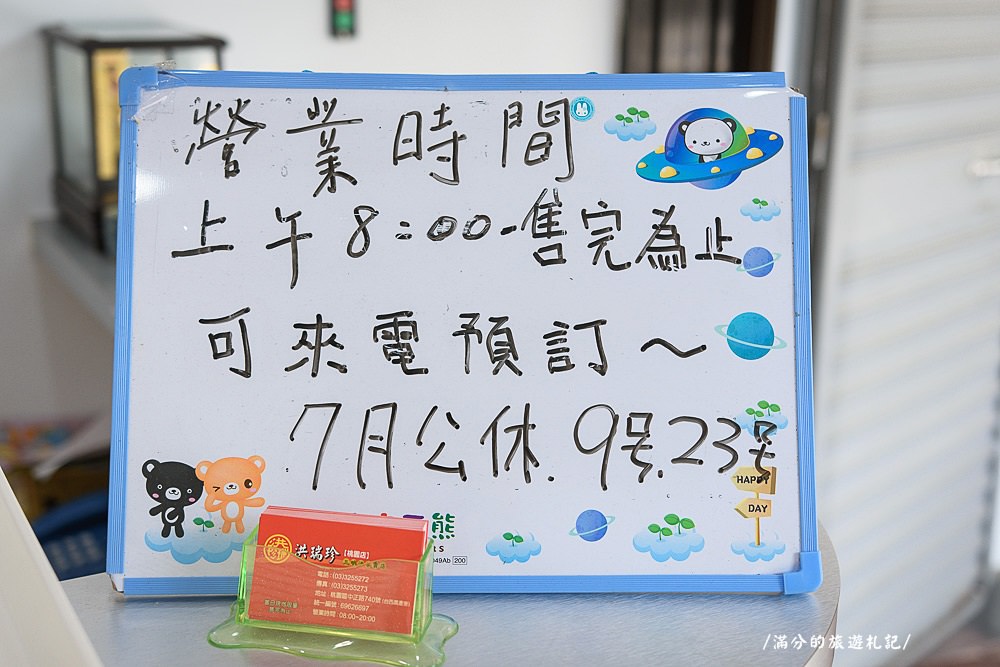 營業時間
上午8:00-售完為止
可來電預訂～
7月公休.9号.23号
HAPPY
DAY
熊
200
洪瑞珍 [桃園店]
電話:(03)3255272
傳真:(03)3255273
地址:桃園區中正路740號
統一編號:69626697
營業時間:08:00~20:00
/滿分的旅遊札記/